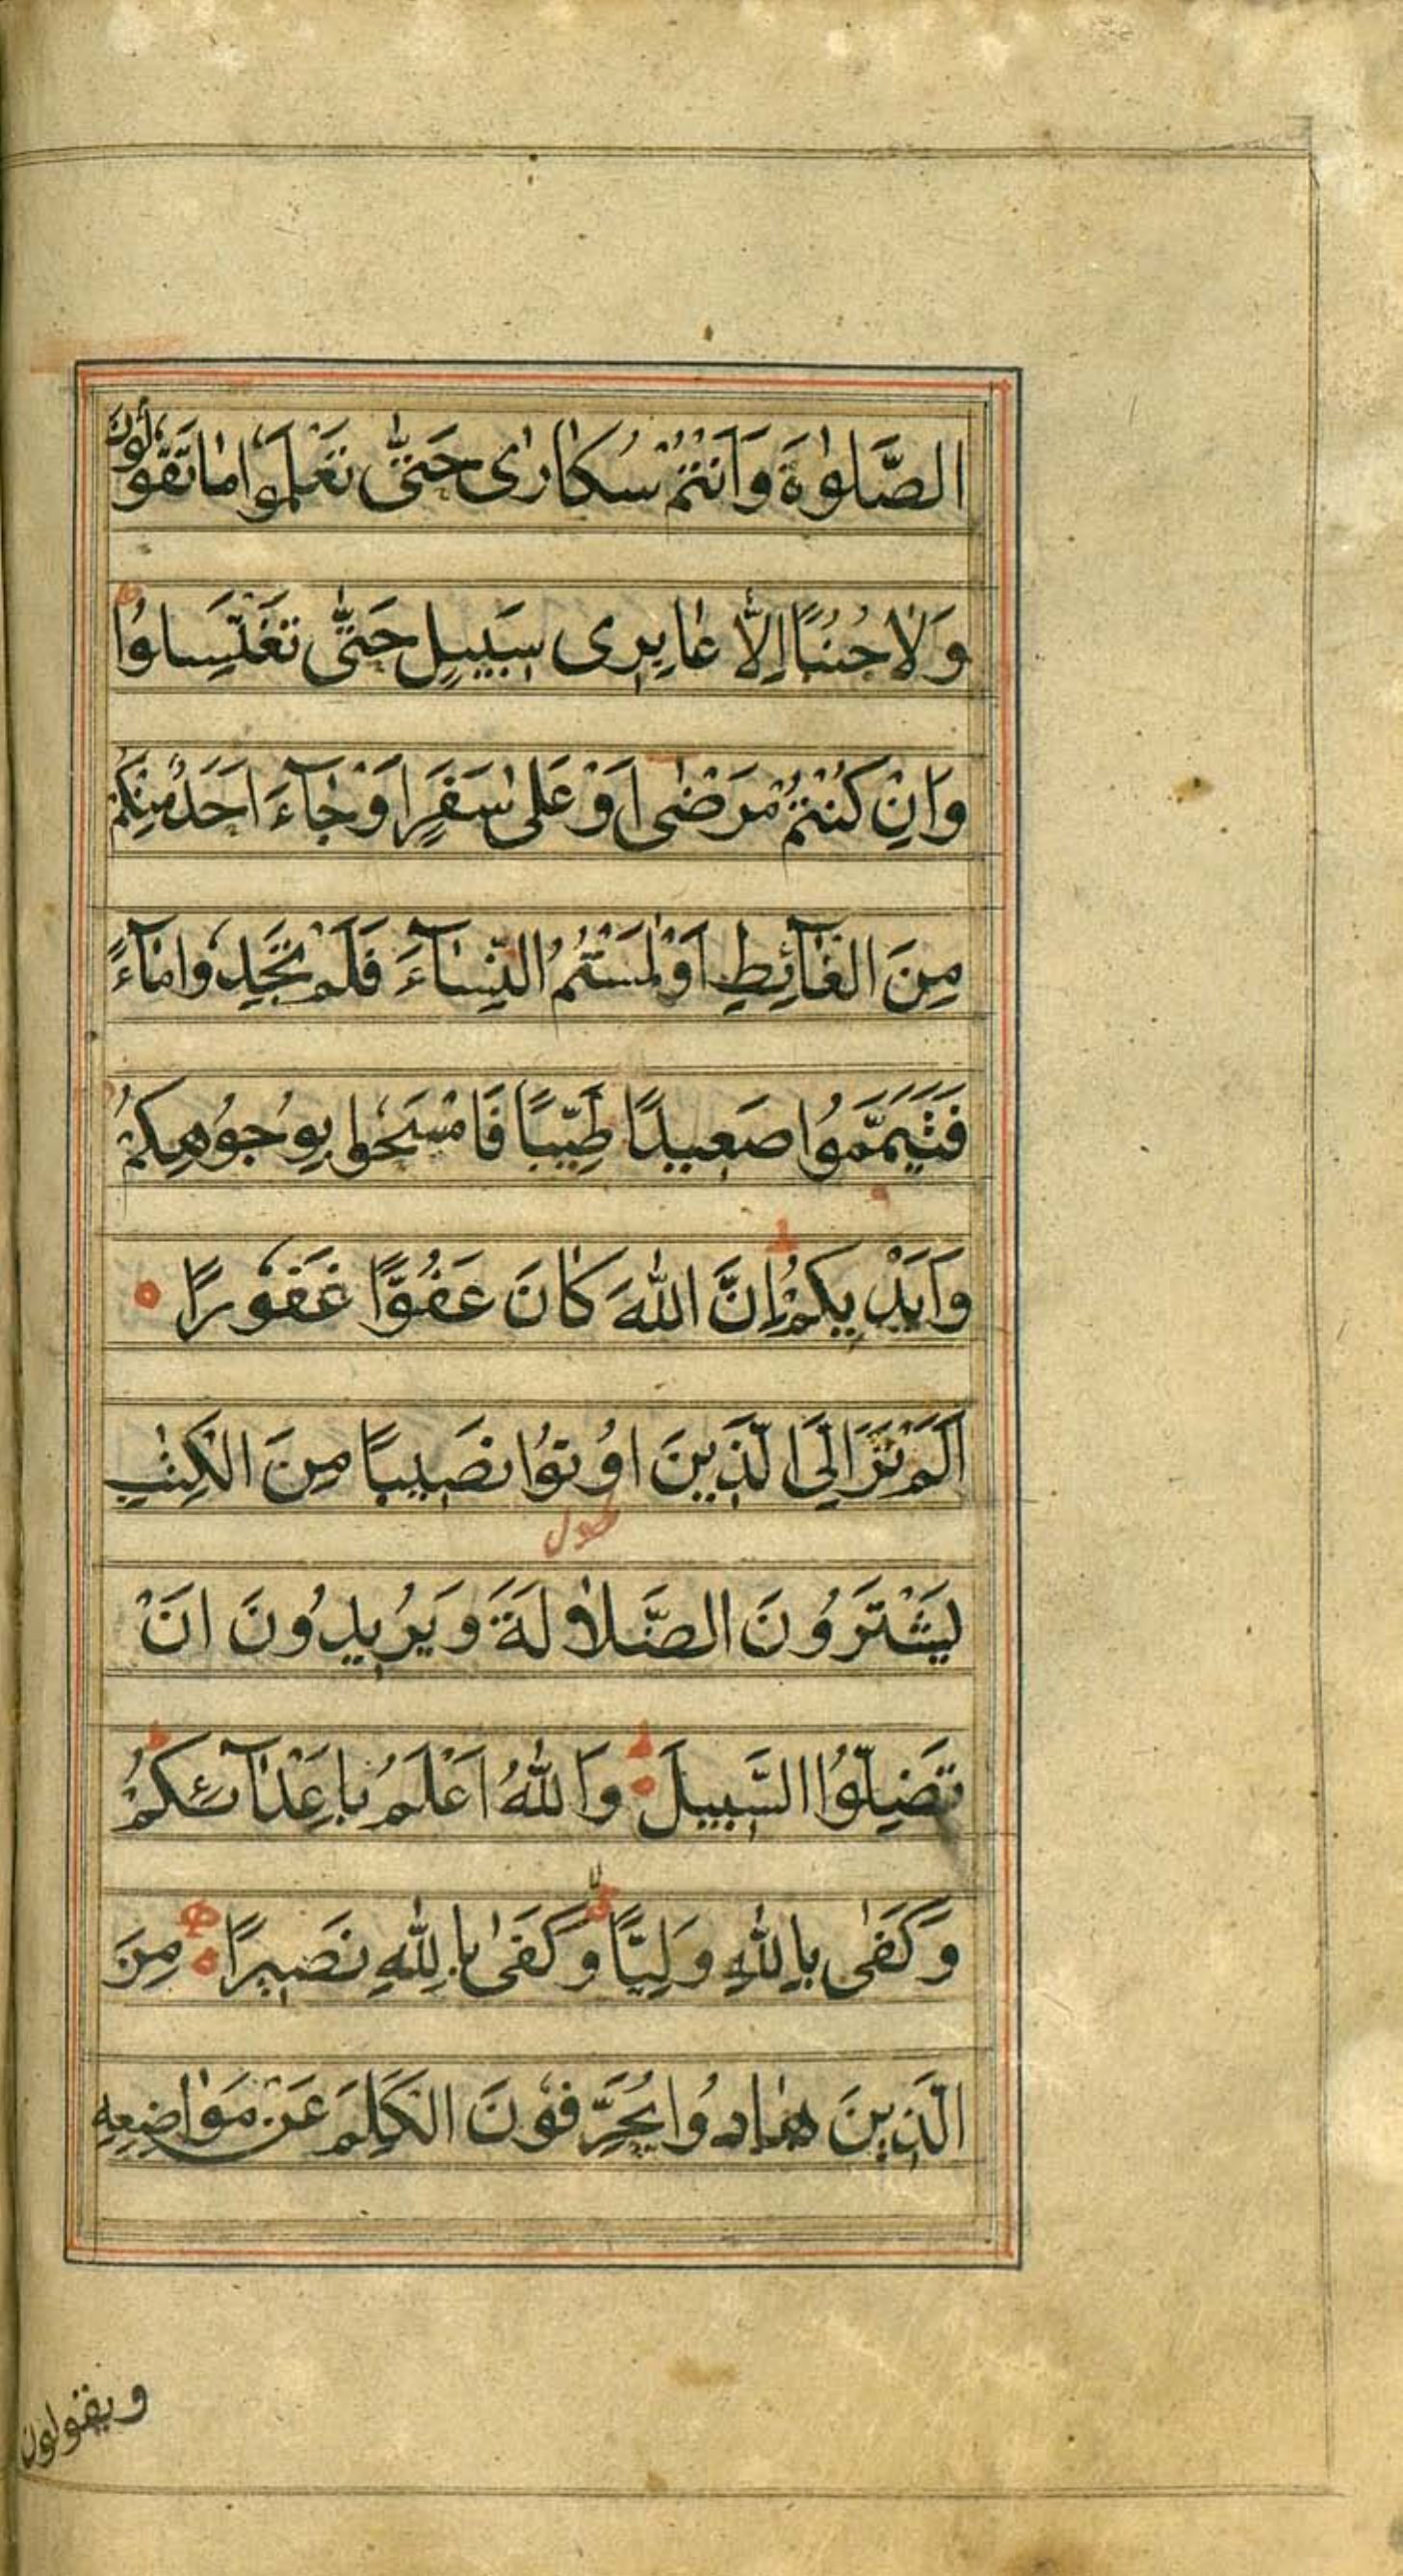 الصَّلٰوةَ وَاَنْتُمْ سُكَارٰى حَتّٰى تَعْلَمُوا مَا تَقُولُونَ
وَلَا جُنُبًا اِلَّا عَابِرِى سَبِيلٍ حَتّٰى تَغْتَسِلُوا
وَاِنْ كُنْتُمْ مَرْضٰى اَوْ عَلٰى سَفَرٍ اَوْ جَآءَ اَحَدٌ مِنْكُمْ
مِنَ الْغَآئِطِ اَوْ لٰمَسْتُمُ النِّسَآءَ فَلَمْ تَجِدُوا مَآءً
فَتَيَمَّمُوا صَعِيدًا طَيِّبًا فَامْسَحُوا بِوُجُوهِكُمْ
وَاَيْدِيكُمْ ط اِنَّ اللّٰهَ كَانَ عَفُوًّا غَفُورًا
اَلَمْ تَرَ اِلَى الَّذِينَ اُوتُوا نَصِيبًا مِنَ الْكِتٰبِ
يَشْتَرُونَ الضَّلَالَةَ وَيُرِيدُونَ اَنْ
تَضِلُّوا السَّبِيلَ ط وَاللّٰهُ اَعْلَمُ بِاَعْدَآئِكُمْ ط
وَكَفٰى بِاللّٰهِ وَلِيًّا وَكَفٰى بِاللّٰهِ نَصِيرًا مِنَ
الَّذِينَ هَادُوا يُحَرِّفُونَ الْكَلِمَ عَنْ مَوَاضِعِهِ
ويقولون